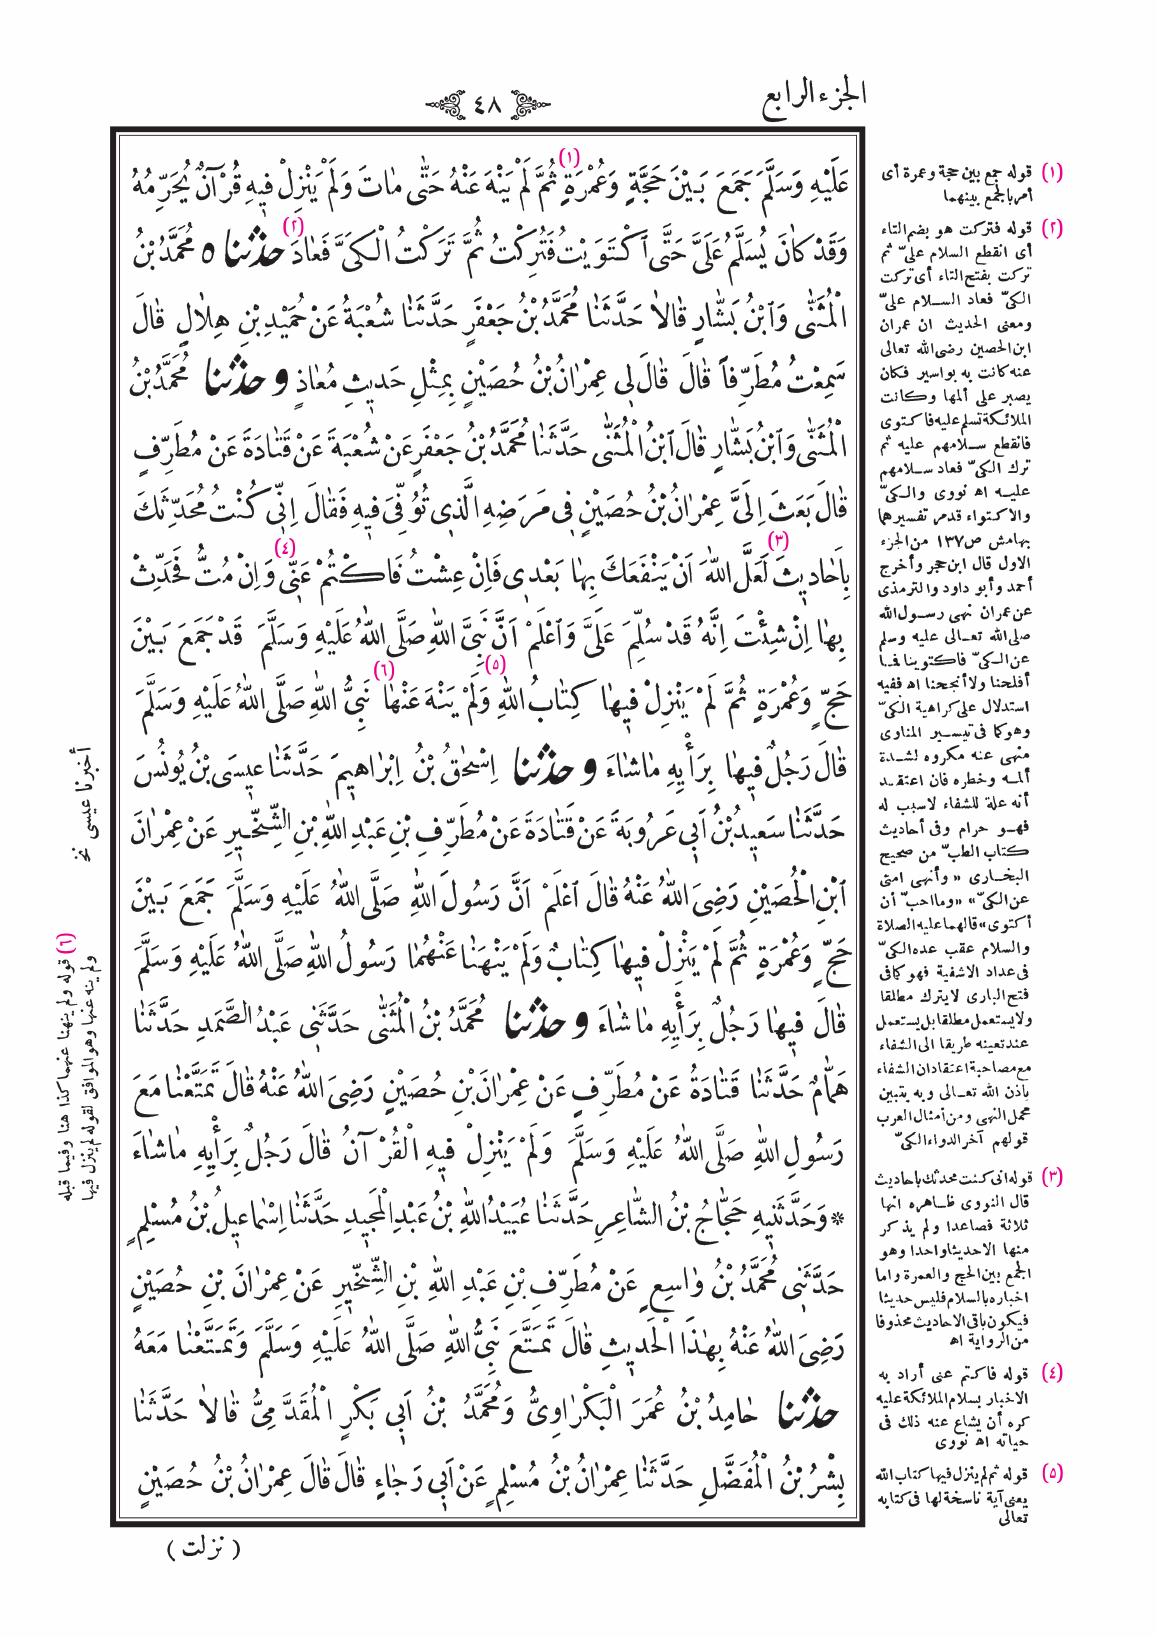 الجزء الرابع
٤٨
عَلَيْهِ وَسَلَّمَ جَمَعَ بَيْنَ حَجَّةٍ وَعُمْرَةٍ (١) ثُمَّ لَمْ يَنْهَ عَنْهُ حَتّٰى مَاتَ وَلَمْ يَنْزِلْ فِيهِ قُرْآنٌ يُحَرِّمُهُ
وَقَدْ كَانَ يُسَلَّمُ عَلَىَّ حَتَّى اَكْتَوَيْتُ فَتُرِكْتُ ثُمَّ تَرَكْتُ الْكَىَّ فَعَادَ (٢) حدثنا ٥ مُحَمَّدُ بْنُ
الْمُثَنّٰى وَابْنُ بَشَّارٍ قَالاَ حَدَّثَنَا مُحَمَّدُ بْنُ جَعْفَرٍ حَدَّثَنَا شُعْبَةُ عَنْ حُمَيْدِ بْنِ هِلَالٍ قَالَ
سَمِعْتُ مُطَرِّفاً قَالَ قَالَ لِى عِمْرَانُ بْنُ حُصَيْنٍ بِمِثْلِ حَديثِ مُعَاذٍ و حدثنا مُحَمَّدُ بْنُ
الْمُثَنّٰى وَابْنُ بَشَّارٍ قَالَ ابْنُ الْمُثَنّٰى حَدَّثَنَا مُحَمَّدُ بْنُ جَعْفَرٍ عَنْ شُعْبَةَ عَنْ قَتَادَةَ عَنْ مُطَرِّفٍ
قَالَ بَعَثَ اِلَىَّ عِمْرَانُ بْنُ حُصَيْنٍ فِى مَرَضِهِ الَّذِى تُوُفِّىَ فِيهِ فَقَالَ اِنِّى كُنْتُ مُحَدِّثَكَ
بِاَحَادِيثَ (٣) لَعَلَّ اللّٰهَ اَنْ يَنْفَعَكَ بِهَا بَعْدِى فَاِنْ عِشْتُ فَاكْتُمْ عَنِّى (٤) وَاِنْ مُتُّ فَحَدِّثْ
بِهَا اِنْ شِئْتَ اِنَّهُ قَدْ سُلِّمَ عَلَىَّ وَاَعْلَمْ اَنَّ نَبِىَّ اللّٰهِ صَلَّى اللّٰهُ عَلَيْهِ وَسَلَّمَ قَدْ جَمَعَ بَيْنَ
حَجٍّ وَعُمْرَةٍ ثُمَّ لَمْ يَنْزِلْ فِيهَا كِتَابُ اللّٰهِ (٥) وَلَمْ يَنْهَ عَنْهَا (٦) نَبِىُّ اللّٰهِ صَلَّى اللّٰهُ عَلَيْهِ وَسَلَّمَ
قَالَ رَجُلٌ فِيهَا بِرَأْيِهِ مَاشَاءَ و حدثنا اِسْحٰقُ بْنُ اِبْرَاهِيمَ حَدَّثَنَا عِيسَى بْنُ يُونُسَ
حَدَّثَنَا سَعِيدُ بْنُ اَبِى عَرُوبَةَ عَنْ قَتَادَةَ عَنْ مُطَرِّفِ بْنِ عَبْدِ اللّٰهِ بْنِ الشِّخِّيرِ عَنْ عِمْرَانَ
ابْنِ الْحُصَيْنِ رَضِىَ اللّٰهُ عَنْهُ قَالَ اَعْلَمْ اَنَّ رَسُولَ اللّٰهِ صَلَّى اللّٰهُ عَلَيْهِ وَسَلَّمَ جَمَعَ بَيْنَ
حَجٍّ وَعُمْرَةٍ ثُمَّ لَمْ يَنْزِلْ فِيهَا كِتَابٌ وَلَمْ يَنْهَنَا عَنْهُمَا رَسُولُ اللّٰهِ صَلَّى اللّٰهُ عَلَيْهِ وَسَلَّمَ
قَالَ فِيهَا رَجُلٌ بِرَأْيِهِ مَاشَاءَ و حدثنا مُحَمَّدُ بْنُ الْمُثَنّٰى حَدَّثَنِى عَبْدُ الصَّمَدِ حَدَّثَنَا
هَمَّامٌ حَدَّثَنَا قَتَادَةُ عَنْ مُطَرِّفٍ عَنْ عِمْرَانَ بْنِ حُصَيْنٍ رَضِىَ اللّٰهُ عَنْهُ قَالَ تَمَتَّعْنَا مَعَ
رَسُولِ اللّٰهِ صَلَّى اللّٰهُ عَلَيْهِ وَسَلَّمَ وَلَمْ يَنْزِلْ فِيهِ الْقُرْآنُ قَالَ رَجُلٌ بِرَأْيِهِ مَاشَاءَ
* وَحَدَّثَنِيهِ حَجَّاجُ بْنُ الشَّاعِرِ حَدَّثَنَا عُبَيْدُ اللّٰهِ بْنُ عَبْدِ الْمَجِيدِ حَدَّثَنَا اِسْمَاعِيلُ بْنُ مُسْلِمٍ
حَدَّثَنِى مُحَمَّدُ بْنُ وَاسِعٍ عَنْ مُطَرِّفِ بْنِ عَبْدِ اللّٰهِ بْنِ الشِّخِّيرِ عَنْ عِمْرَانَ بْنِ حُصَيْنٍ
رَضِىَ اللّٰهُ عَنْهُ بِهٰذَا الْحَدِيثِ قَالَ تَمَتَّعَ نَبِىُّ اللّٰهِ صَلَّى اللّٰهُ عَلَيْهِ وَسَلَّمَ وَتَمَتَّعْنَا مَعَهُ
حدثنا حَامِدُ بْنُ عُمَرَ الْبَكْرَاوِىُّ وَمُحَمَّدُ بْنُ اَبِى بَكْرٍ الْمُقَدَّمِىُّ قَالاَ حَدَّثَنَا
بِشْرُ بْنُ الْمُفَضَّلِ حَدَّثَنَا عِمْرَانُ بْنُ مُسْلِمٍ عَنْ اَبِى رَجَاءٍ قَالَ قَالَ عِمْرَانُ بْنُ حُصَيْنٍ
( نزلت )
(١) قوله جمع بين حجة وعمرة أى
أمر بالجمع بينهما
(٢) قوله فتركت هو بضم التاء
أى انقطع السلام علىّ ثم
تركت بفتح التاء أى تركت
الكىّ فعاد السلام علىّ
ومعنى الحديث ان عمران
ابن الحصين رضى الله تعالى
عنه كانت به بواسير فكان
يصبر على ألمها وكانت
الملائكة تسلم عليه فاكتوى
فانقطع سلامهم عليه ثم
ترك الكىّ فعاد سلامهم
عليه اه نووى والكىّ
والاكتواء قدمر تفسيرهما
بهامش ص١٣٧ من الجزء
الاول قال ابن حجر وأخرج
أحمد وأبو داود والترمذى
عن عمران نهى رسول الله
صلى الله تعالى عليه وسلم
عن الكىّ فاكتوينا فما
أفلحنا ولا أنجحنا اه ففيه
استدلال على كراهية الكىّ
وهو كما فى تيسير المناوى
منهى عنه مكروه لشدة
ألمه وخطره فان اعتقد
أنه علة للشفاء لاسبب له
فهو حرام وفى أحاديث
كتاب الطبّ من صحيح
البخارى « وأنهى امتى
عن الكىّ» «وما احبّ أن
أكتوى» قالهما عليه الصلاة
والسلام عقب عده الكىّ
فى عداد الاشفية فهو كما فى
فتح البارى لا يترك مطلقا
ولا يستعمل مطلقا بل يستعمل
عند تعينه طريقا الى الشفاء
مع مصاحبة اعتقادان الشفاء
باذن الله تعالى وبه يتبين
محمل النهى ومن أمثال العرب
قولهم آخر الدواء الكىّ
(٣) قوله انى كنت محدثك باحاديث
قال النووى ظاهره انها
ثلاثة فصاعدا ولم يذكر
منها الاحديثا واحدا وهو
الجمع بين الحج والعمرة واما
اخباره بالسلام فليس حديثا
فيكون باقى الاحاديث محذوفا
من الرواية اه
(٤) قوله فاكتم عنى أراد به
الاخبار بسلام الملائكة عليه
كره أن يشاع عنه ذلك فى
حياته اه نووى
(٥) قوله ثم لم ينزل فيها كتاب الله
يعنى آية ناسخة لها فى كتابه
تعالى
أخبرنا عيسى نخ
(٦) قوله ولم ينهنا عنهما كذا هنا وفيما قبله
ولم ينه عنها وهو الموافق لقوله لم ينزل فيها